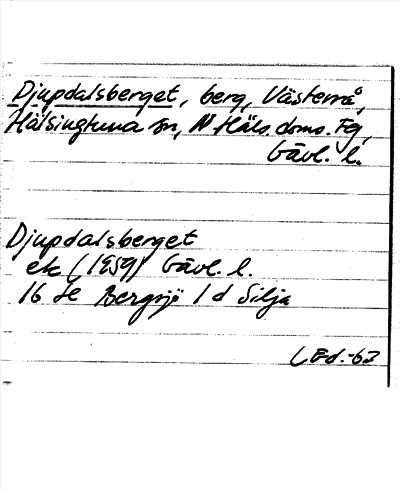 Djupdalsberget, berg, Västerrå,
Hälsingtuna sn, N Häls. doms. Fg,
Gävl. l.
Djupdalsberget
ek (1959) Gävl. l.
16 Bergsjö 1 d Silja
LEd.-62